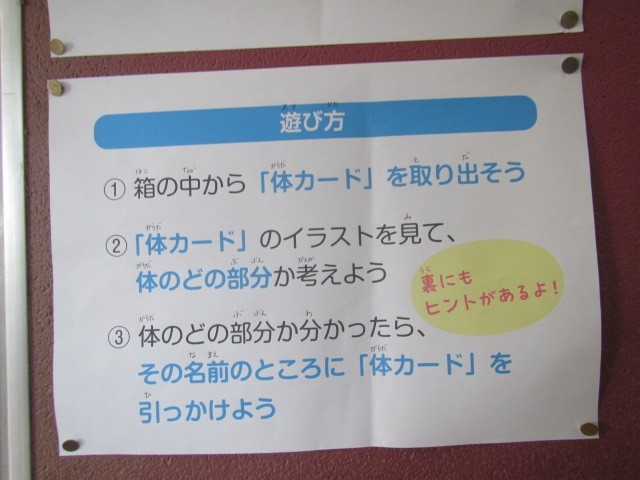 遊び方
① 箱の中から「体カード」を取り出そう
② 「体カード」のイラストを見て、
体のどの部分か考えよう
裏にも
ヒントがあるよ!
③ 体のどの部分か分かったら、
その名前のところに「体カード」を
引っかけよう